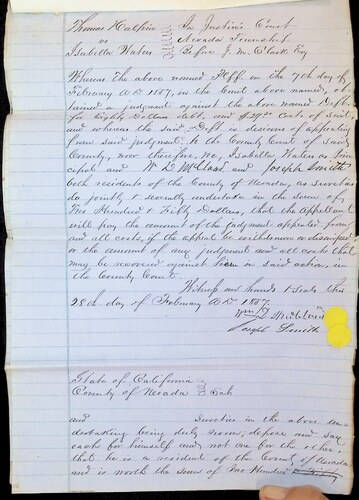 Thomas Halpine In Justice's Court
vs Nevada Township
Isabella Waters Before J. M. Clark Esq
Whereas the above named Plff. on the 7th day of
February A.D. 1857, in the Court above named, ob-
tained a judgment against the above named Deft.
for Eighty Dollars debt, and Costs of Suit,
and whereas the said Deft is desirous of appealing
from said judgment to the County Court of said
County, now therefore, we, Isabella Waters as prin-
cipal and and Joseph Smith
both residents of the County of Nevada, as sureties
do jointly & severally undertake in the sum of
Two Hundred & Fifty Dollars, that the Appellant
will pay the amount of the judgment appealed from
and all costs, if the appeal be withdrawn or dismissed
or the amount of any judgment and all costs that
may be recovered against in said action, in
the County Court.
Witness our hands & seals this
28th day of February A.D. 1857.
Joseph Smith
State of California
County of Nevada
and Sureties in the above un-
dertaking being duly sworn, depose and say
each for himself and not one for the other,
that he is a resident of the County of Nevada
and is worth the sum of Two Hundred